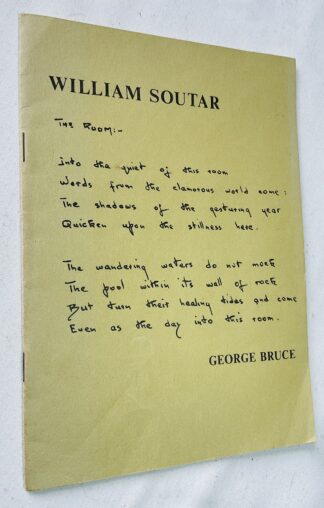 WILLIAM SOUTAR
THE ROOM:-
Into the quiet of this room
Words from the clamorous world come:
The shadows of the gesturing year
Quicken upon the stillness here.
The wandering waters do not mock
The pool within its wall of rock
But turn their healing tides and come
Even as the day into this room.
GEORGE BRUCE